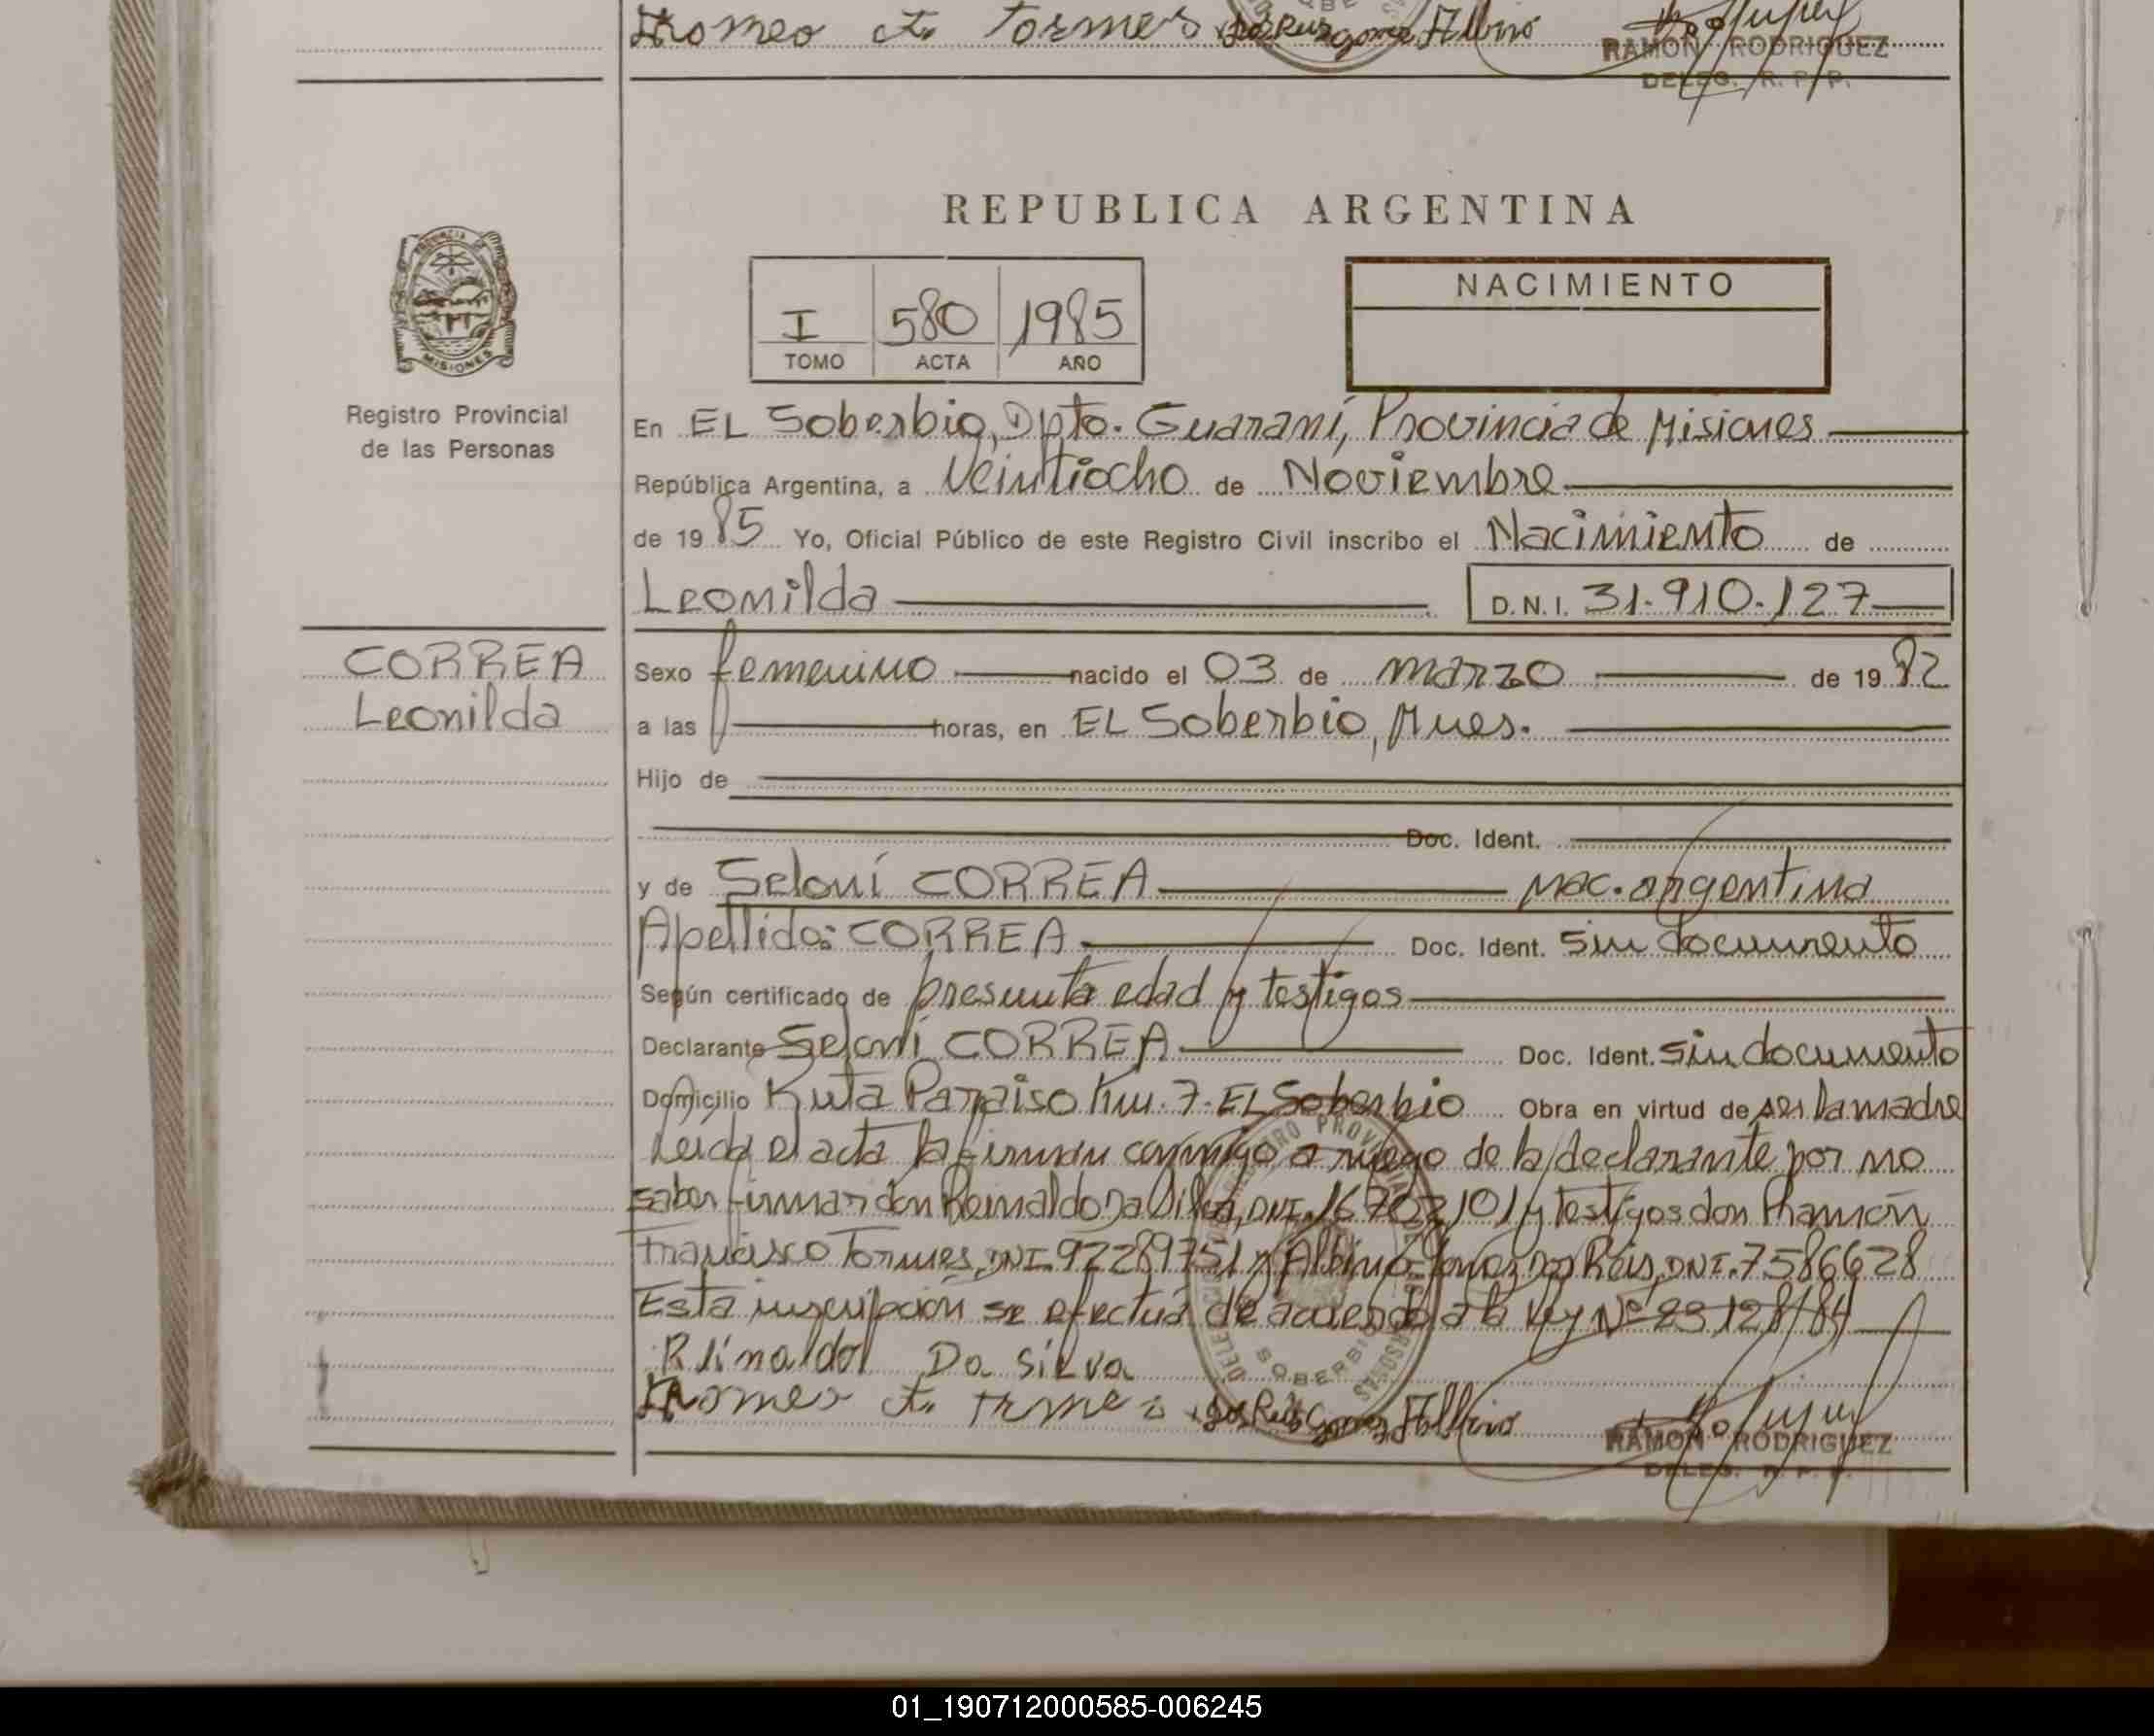 Romeo A. Tormes Dos Reis gomez Albino
RAMON RODRIGUEZ
DELEG. R. P. P.
REPUBLICA ARGENTINA
NACIMIENTO
I 580 1985
TOMO ACTA AÑO
MISIONES
Registro Provincial
de las Personas
En EL Soberbio, Dpto. Guaraní, Provincia de Misiones
República Argentina, a Veintiocho de Noviembre
de 1985 Yo, Oficial Público de este Registro Civil inscribo el Nacimiento de
Leonilda D.N.I. 31.910.127
CORREA
Leonilda
Sexo femenino nacido el 03 de marzo de 1982
a las horas, en EL Soberbio, Mnes.
Hijo de
Doc. Ident.
y de Seloní CORREA nac. argentina
Apellido: CORREA Doc. Ident. Sin documento
Según certificado de presunta edad y testigos
Declarante Seloní CORREA Doc. Ident. Sin documento
Domicilio Ruta Paraiso Km. 7. EL Soberbio Obra en virtud de ser la madre
Leida el acta la firman conmigo a ruego de la declarante por no
saber firmar don Reinaldo Da Silva, DNI. y testigos don Ramón
Francisco Tormes, DNI. 92289751 y Albino Gomez Dos Reis, DNI. 7586628
Esta inscripción se efectua de acuerdo a la Ley Nº 23128/84
Reinaldo Da Silva
Romeo A. Dos Reis Gomez Albino
RAMON RODRIGUEZ
DELEG. R. P. P.
01_190712000585-006245